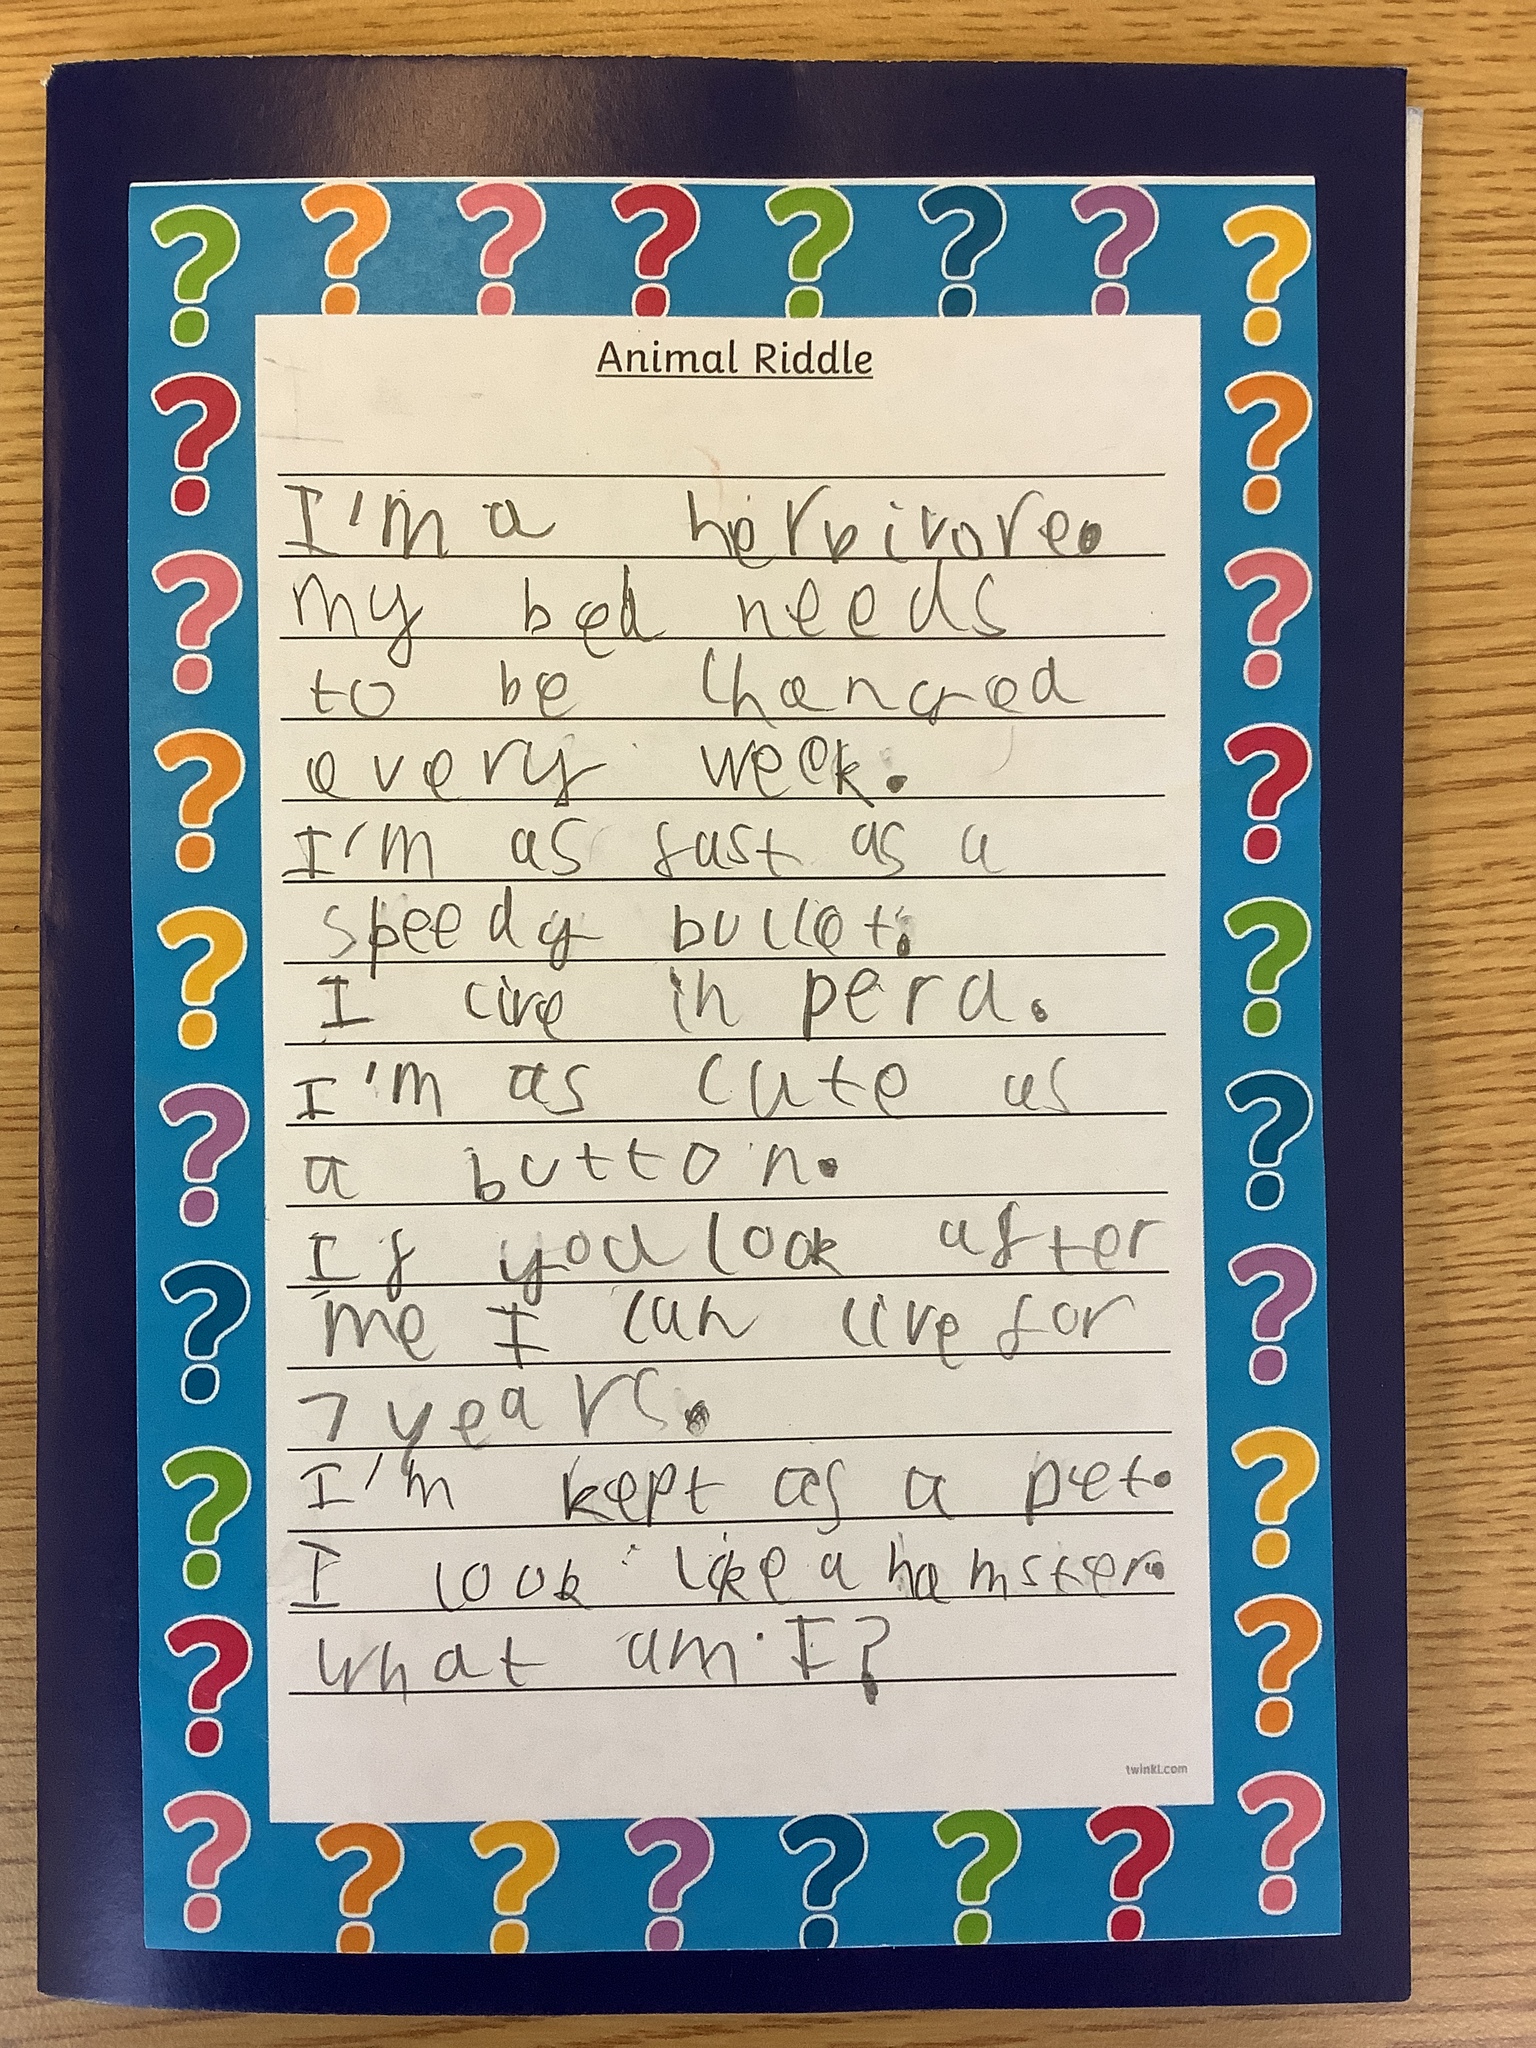 Animal Riddle
I'm a herbivore.
my bed needs
to be changed
every week.
I'm as fast as a
speedy bullet.
I live in peru.
I'm as cute as
a button.
If you look after
me I can live for
7 years.
I'm kept as a pet.
I look like a hamster.
What am I?
twinkl.com